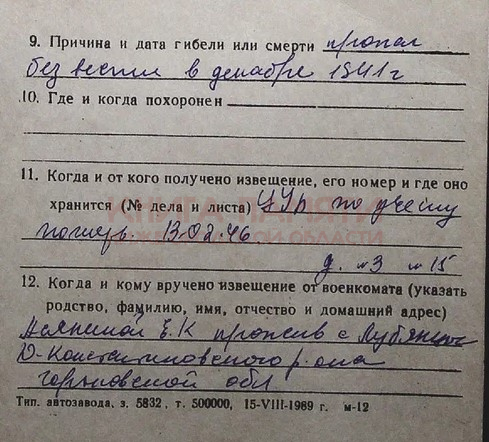 9. Причина и дата гибели или смерти пропал
без вести в декабре 1941 г
10. Где и когда похоронен
11. Когда и от кого получено извещение, его номер и где оно
хранится (№ дела и листа) УУр по учету
потерь. 13.02.46.
д. № 3 № 15
12. Когда и кому вручено извещение от военкомата (указать
родство, фамилию, имя, отчество и домашний адрес)
Е.К прожив с
Д-Константиновского р-она
Горьковской обл
Тип. автозавода, з. 5832, т. 500000, 15-VIII-1989 г. м-12
КНИГА ПАМЯТИ
НИЖЕГОРОДСКОЙ ОБЛАСТИ